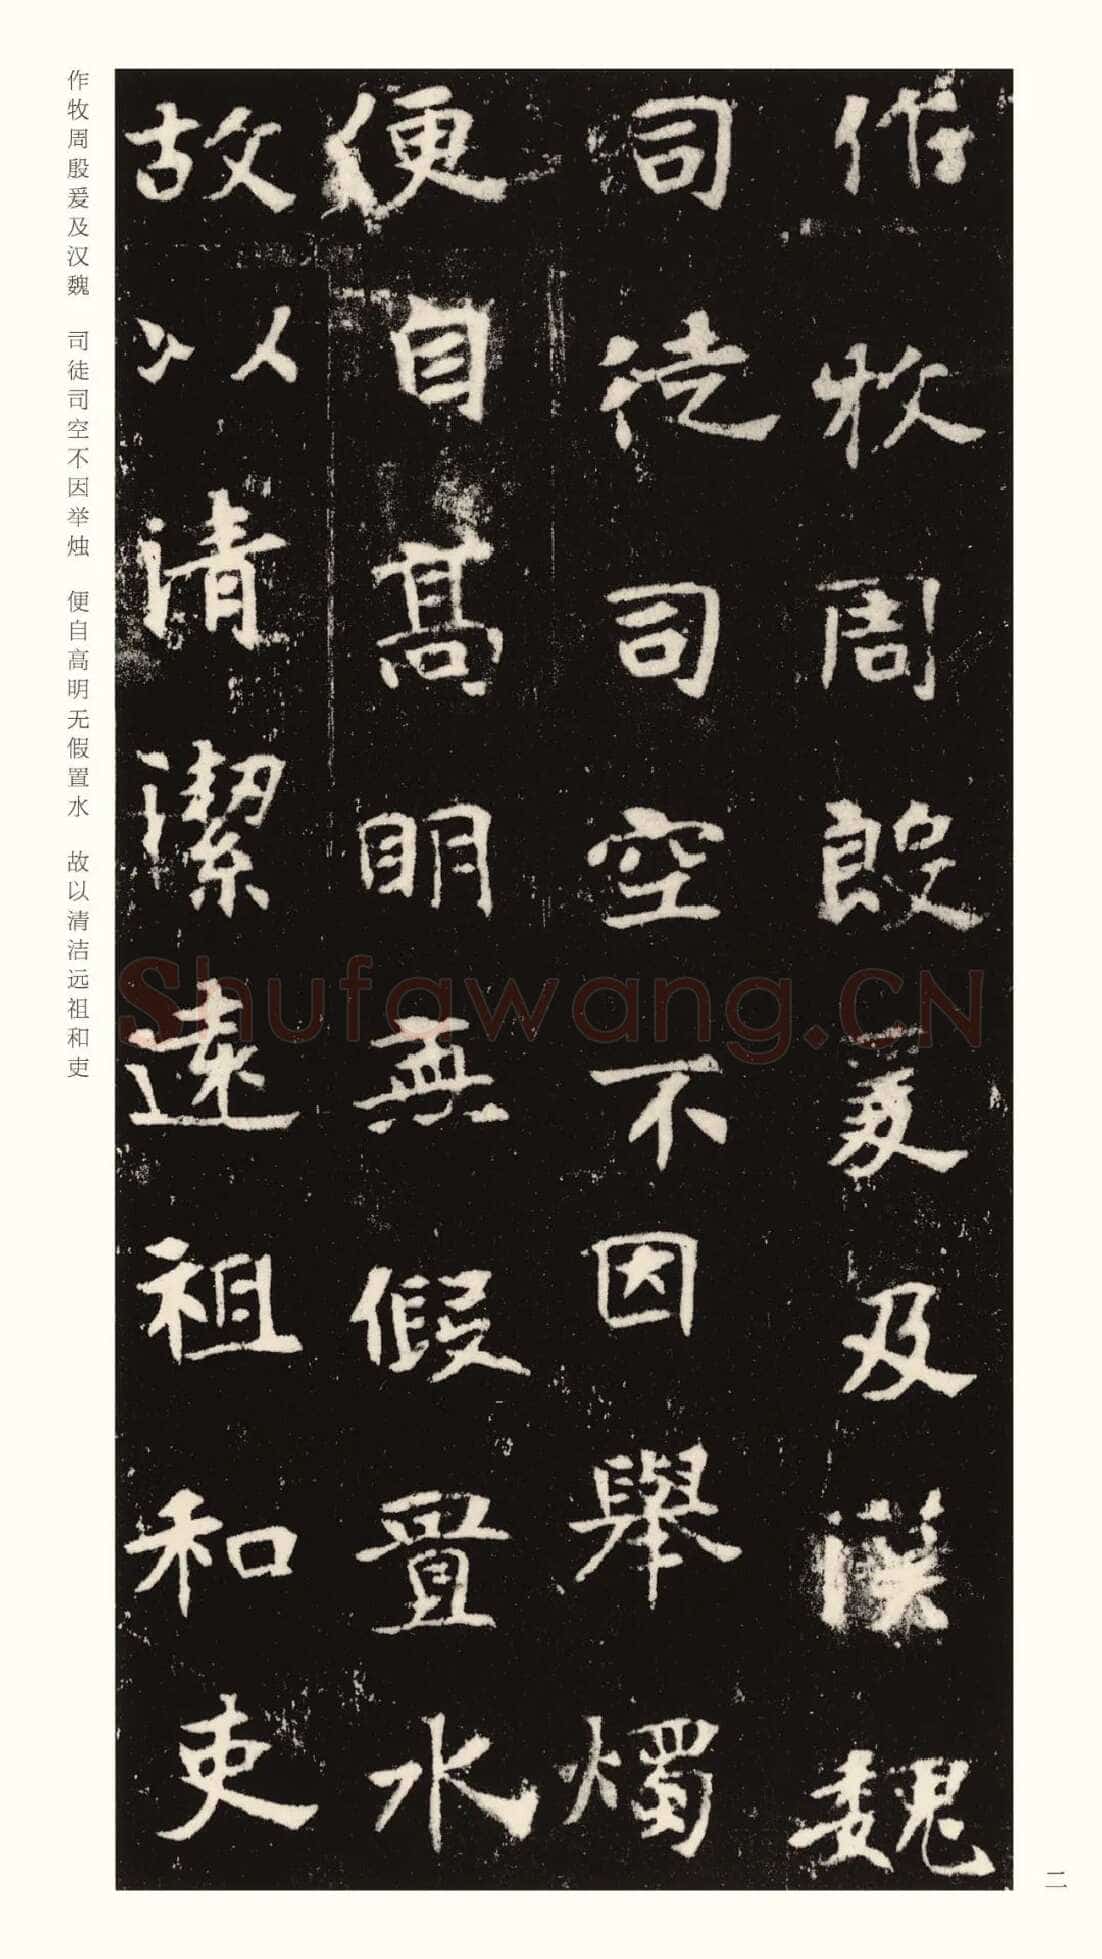 作牧周殷爰及漢魏
司徒司空不因舉燭
便自高明無假置水
故以清潔遠祖和吏
作牧周殷爰及汉魏　司徒司空不因举烛　便自高明无假置水　故以清洁远祖和吏
二
Shufawang.CN